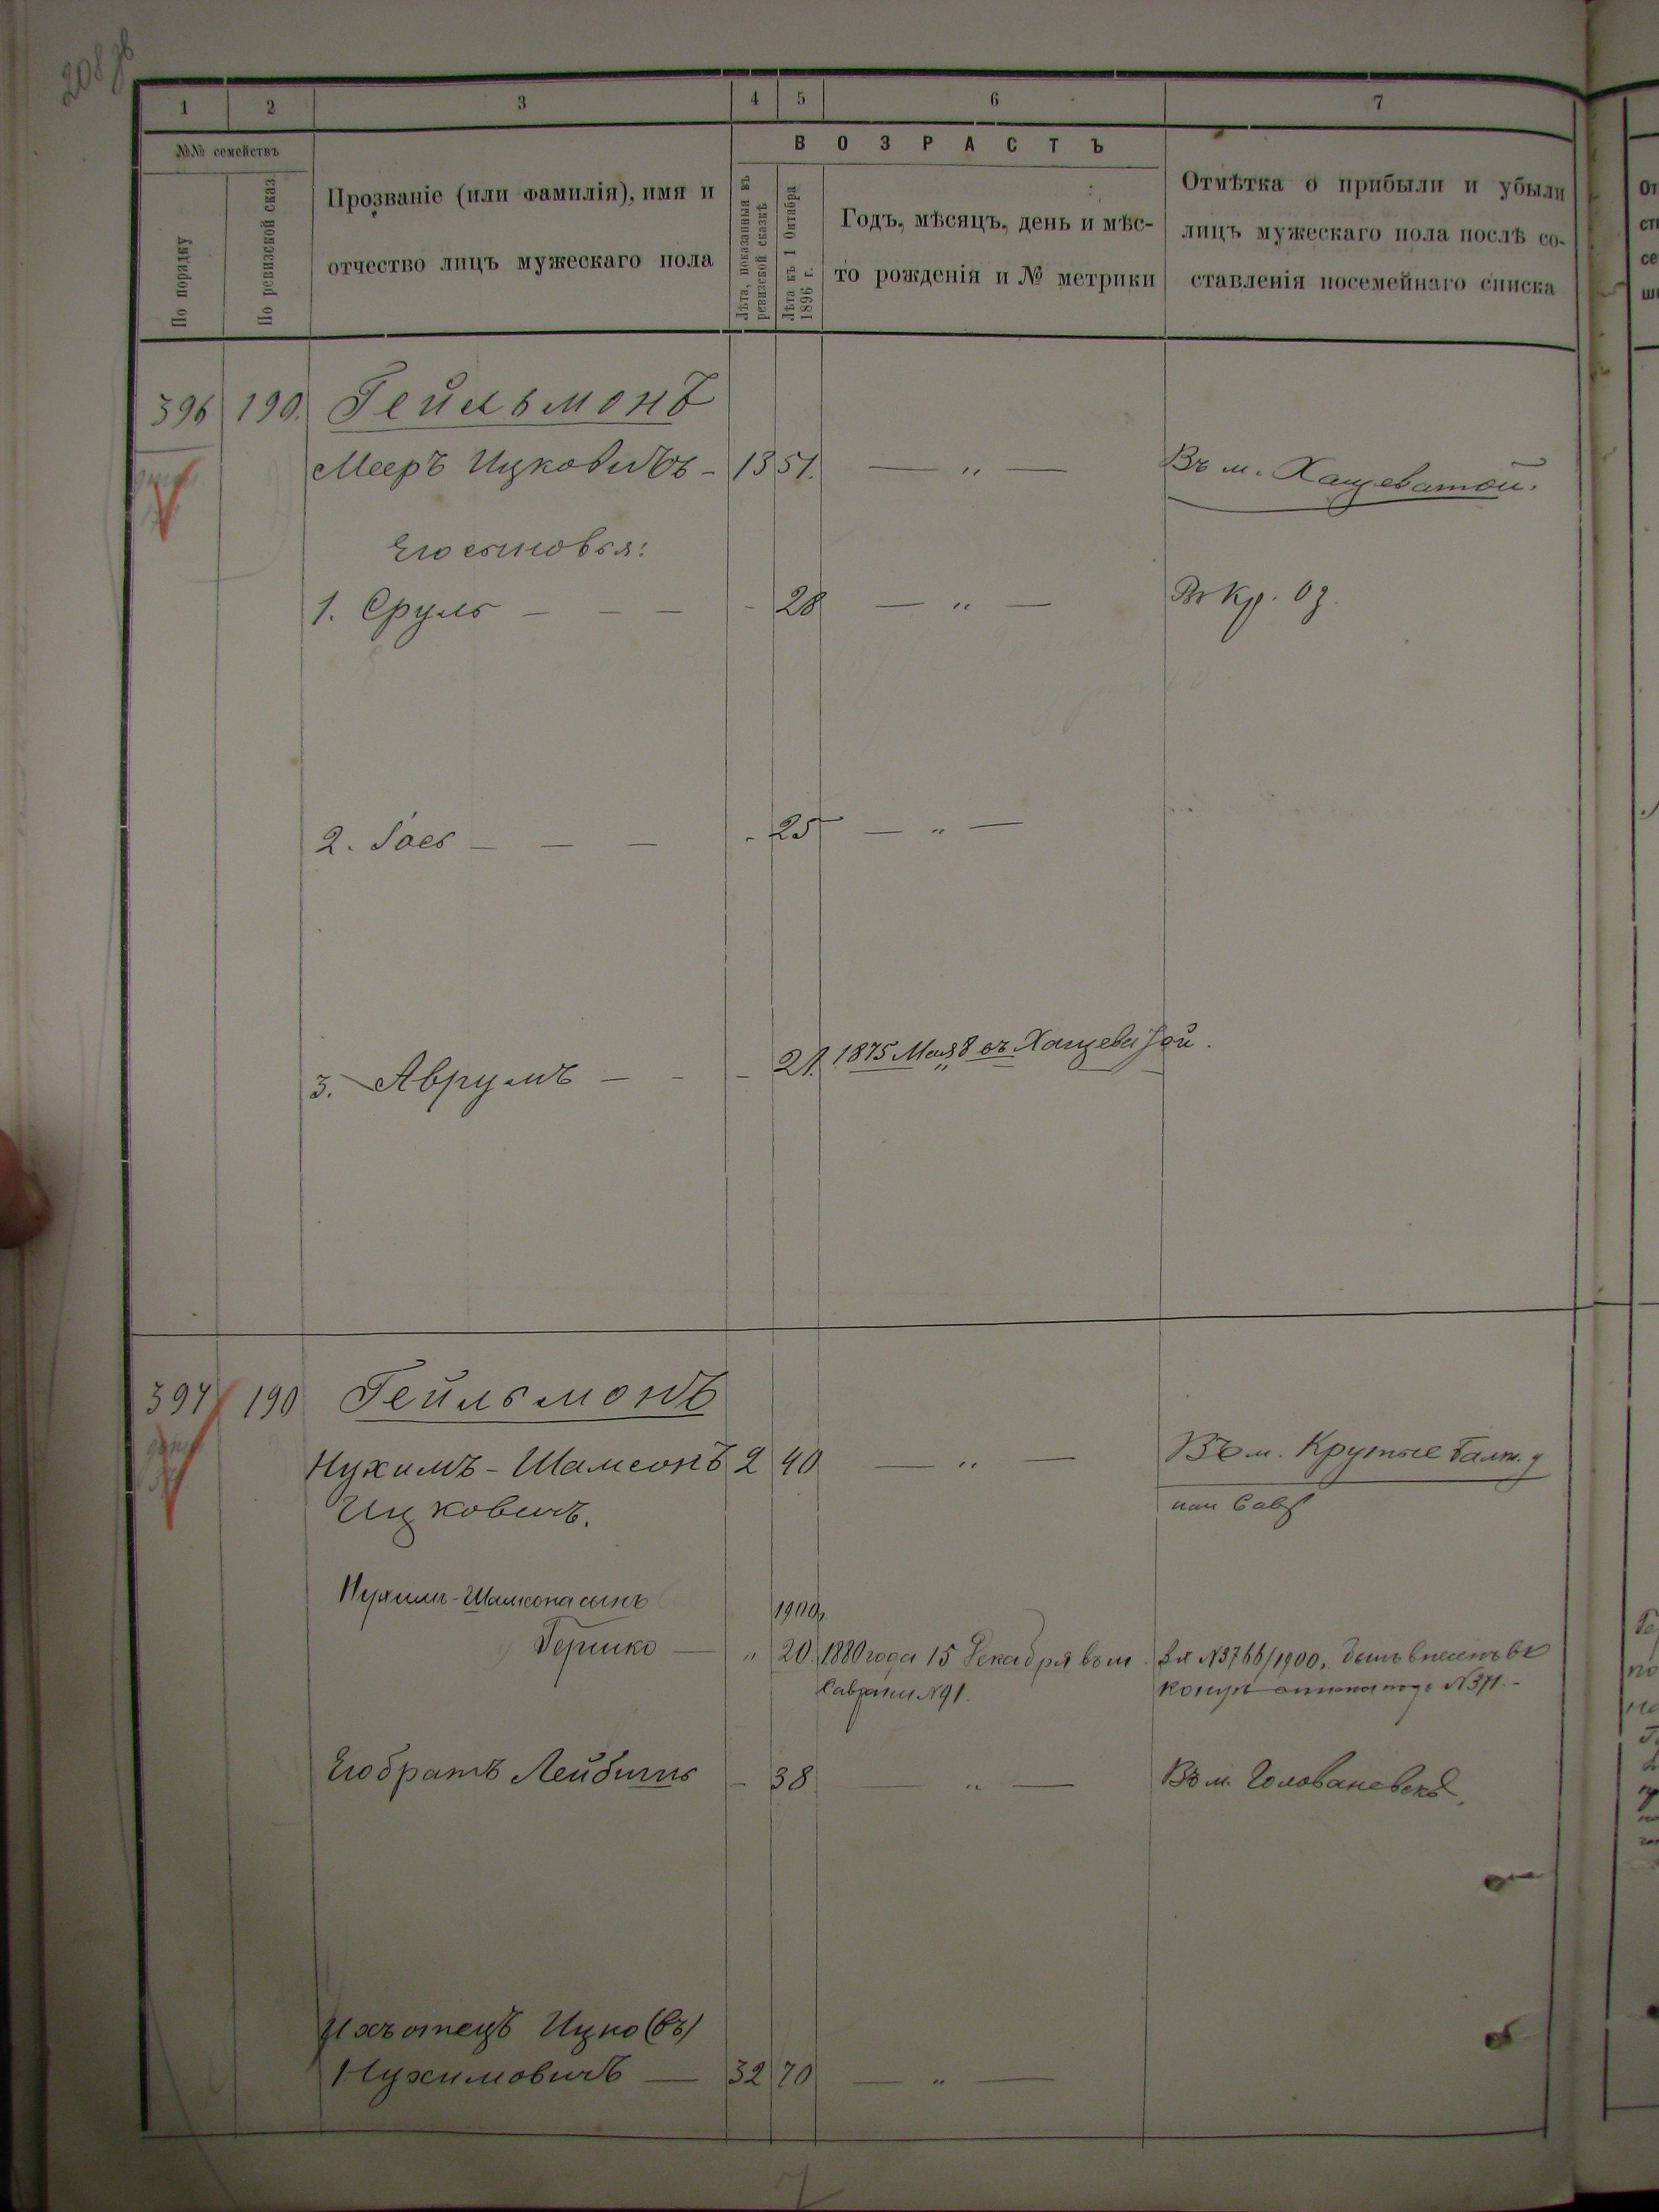 208 об
1 2 3 4 5 6 7
№№ семействъ
По порядку
По ревизской сказ.
Прозваніе (или фамилія), имя и
отчество лицъ мужескаго пола
ВОЗРАСТЪ
Лѣта, показанныя въ
ревизской сказкѣ
Лѣта къ 1 Октября
1896 г.
Годъ, мѣсяцъ, день и мѣс-
то рожденія и № метрики
Отмѣтка о прибыли и убыли
лицъ мужескаго пола послѣ со-
ставленія посемейнаго списка
396 190. Гейльмонъ
Мееръ Ицковичъ - 13 51. — „ — Въ м. Хащеватой.
Его сыновья:
1. Сруль — — — - 28 — „ — Кр. Оз.
2. Іось — — — - 25 — „ —
3. Аврумъ — - - 21. 1875 Мая 8 въ Хащеватой.
397 190 Гейльмонъ
Нухимъ - Шамсонъ 2 40 — „ — Въ м. Крутые Балт. у
Ицковичъ.
или Сав
Нухимъ-Шамсона сынъ
1900
Гершко — „ 20. 1880 года 15 Декабря въ м. №3766/1900. былъ внесенъ въ
Саврани №91. подъ №371. -
Его братъ Лейбишъ - 38 — „ — Въ м. Голованевскѣ.
Ихъ отецъ Ицко (въ)
Нухимовичъ — 32 70 — „ —